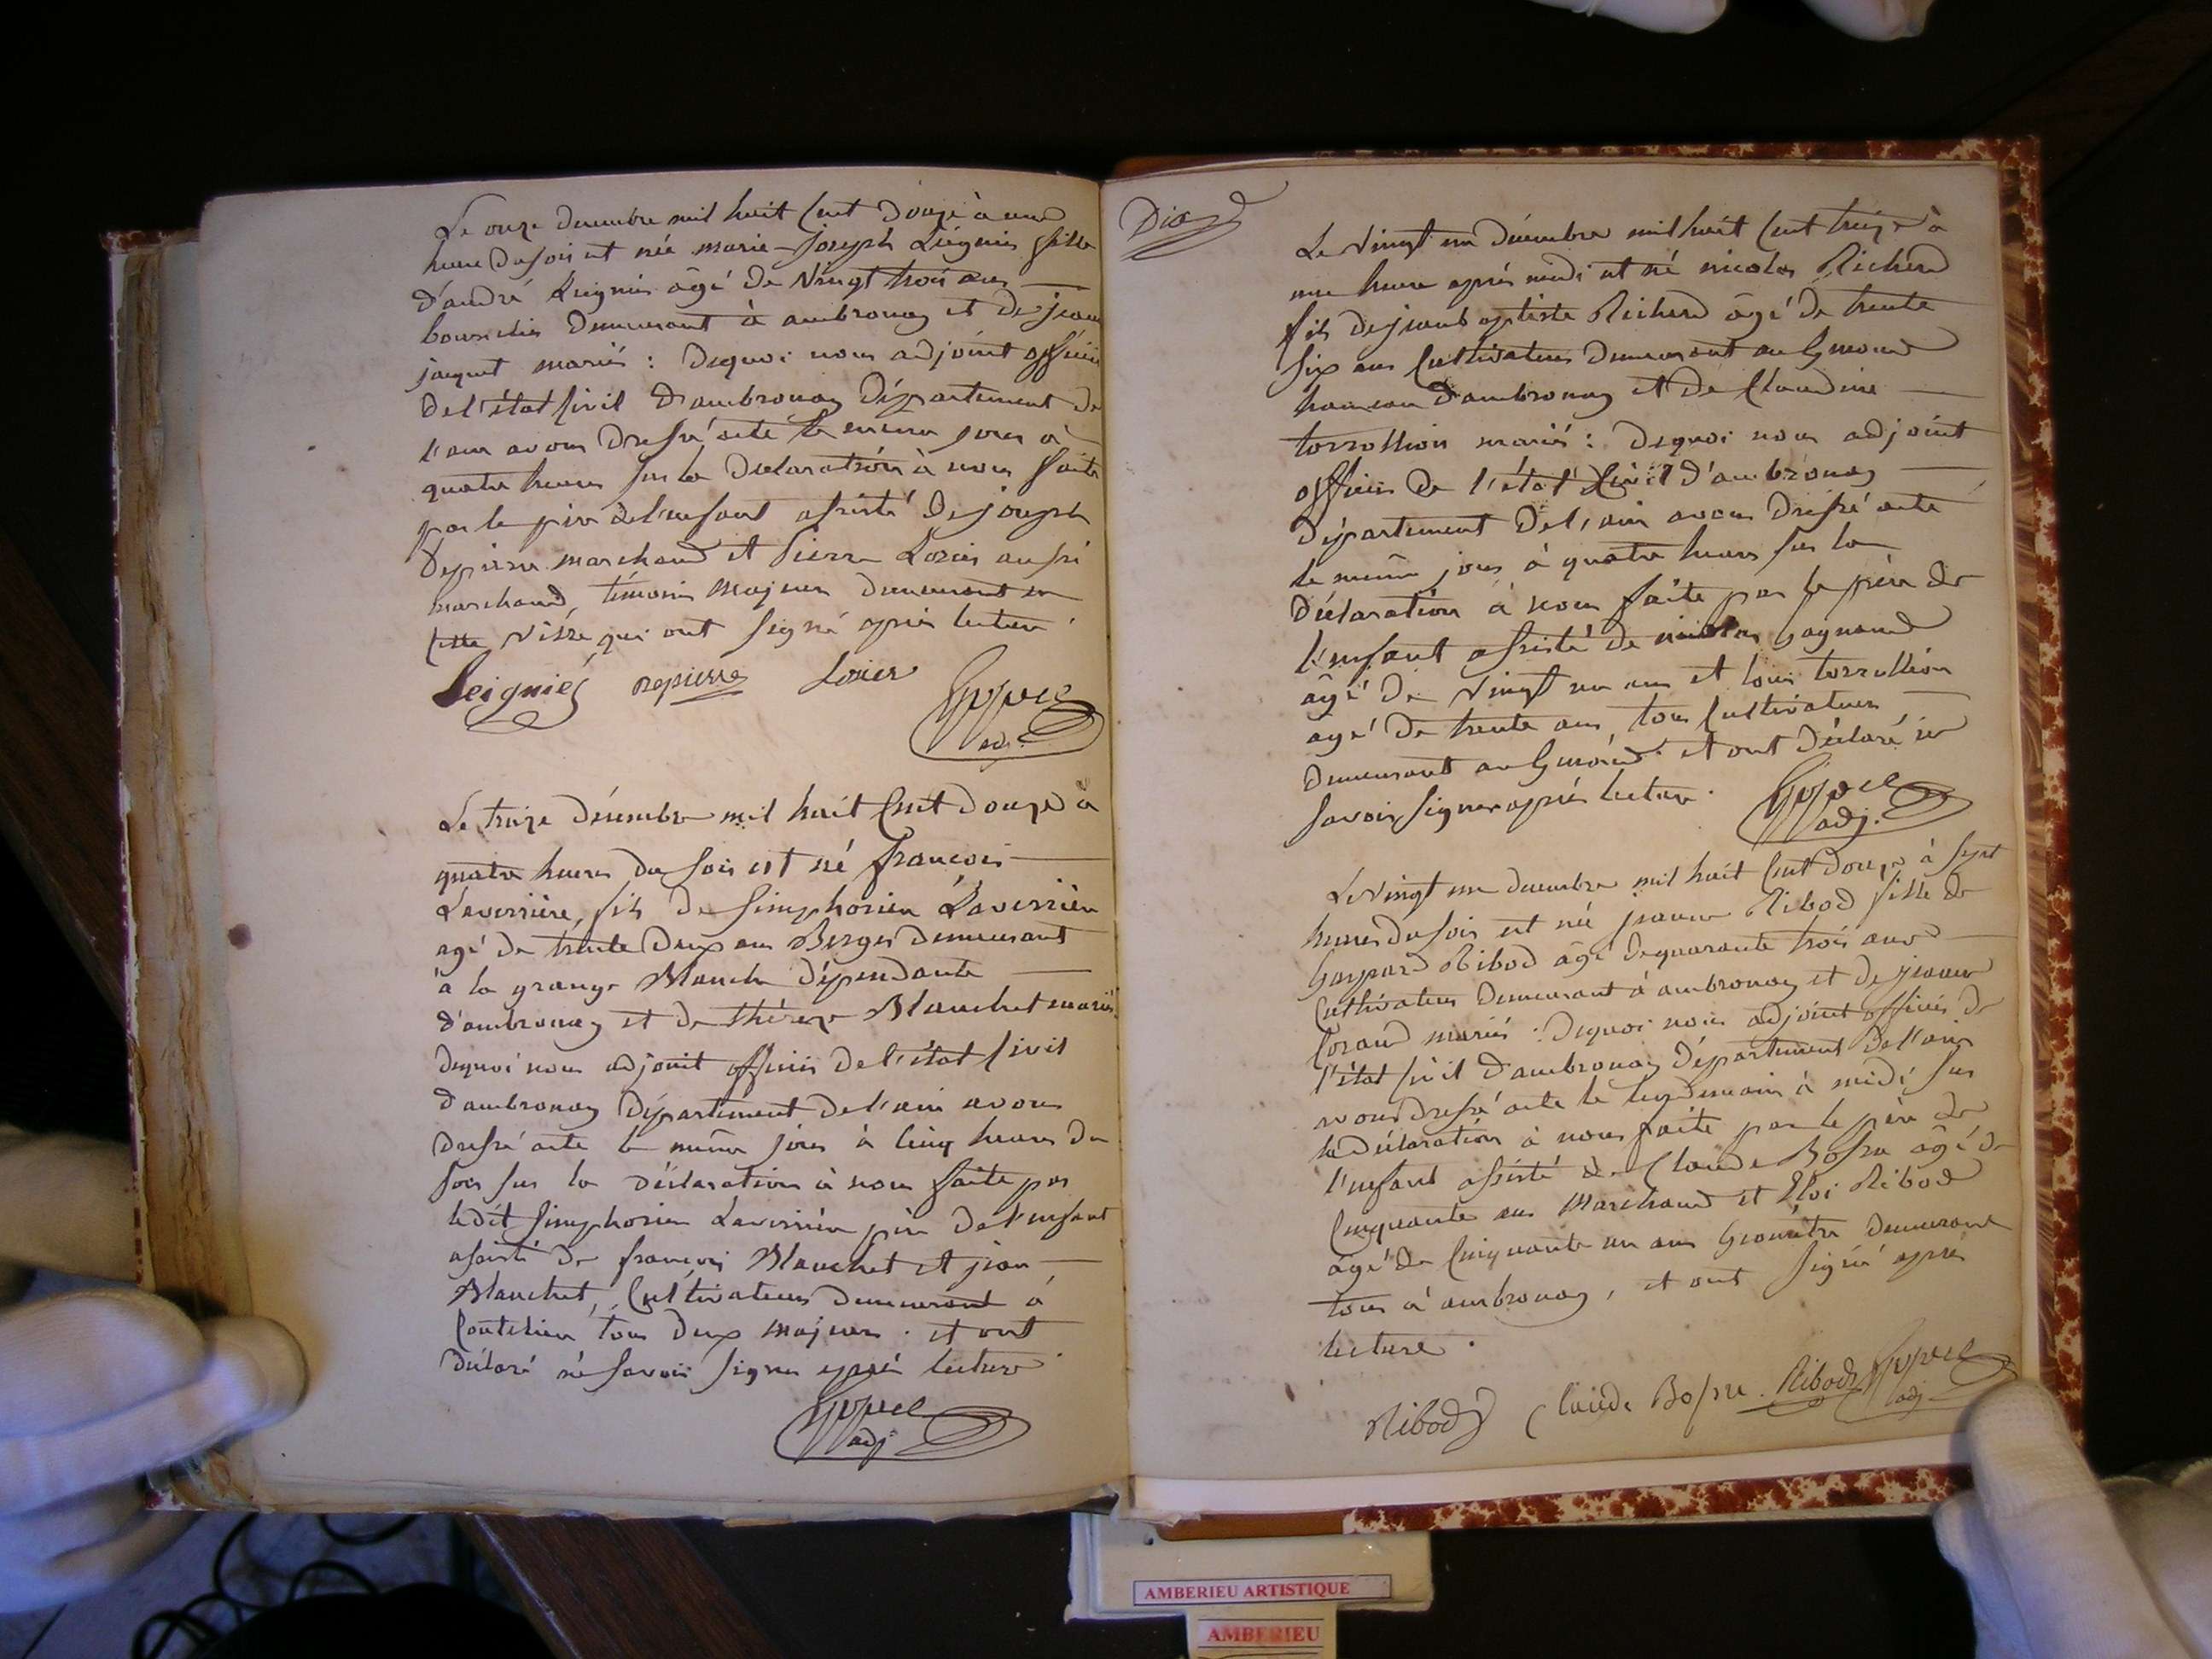 Le onze decembre mil huit Cent douze à une
heure du soir est née marie-joseph Leignier fille
d'andré Leignier âgé de vingt trois ans
bourrelier demeurant à ambronay et de jeanne
jacquet mariés : dequoi nous adjoint officier
de l'état Civil d'ambronay Département de
l'ain avons dressé acte le même jour à
quatre heures sur la déclaration à nous faite
par le père de l'enfant assisté de joseph
Depierre marchand et Pierre Lozier aussi
marchand, témoins majeurs demeurant en
Cette ville, qui ont signé après lecture.
Leignier depierre Lozier
adj.
Le treize décembre mil huit Cent douze à
quatre heures du soir est né françois
Laverrière, fils de Simphorien Laverrière
agé de trente deux ans Berger demeurant
à la grange Blanche dépendante
d'ambronay et de thérèze Blanchet mariés.
dequoi nous adjoint officier de l'état Civil
d'ambronay Département de l'ain avons
dressé acte le même jour à Cinq heures du
soir sur la déclaration à nous faite par
ledit Simphorien Laverrière père de l'enfant
assisté de françois Blanchet et jean
Blanchet, Cultivateurs demeurant à
tous deux majeurs. et ont
déclaré ne savoir signer après lecture.
adj.
Le vingt un décembre mil huit Cent treize à
une heure après midi est né nicolas Richerd
fils de jean baptiste Richerd âgé de trente
six ans Cultivateur demeurant au
hameau d'ambronay et de Claudine
torrollion mariés : dequoi nous adjoint
officier de l'état Civil d'ambronay
Département de l'ain avons dressé acte
le même jour à quatre heures sur la
déclaration à nous faite par le père de
l'enfant assisté de nicolas Gagnand
âgé de vingt un ans et louis torrollion
agé de trente ans, tous Cultivateurs
demeurant au et ont déclaré ne
savoir signer après lecture.
adj.
Le vingt un decembre mil huit Cent douze à sept
heures du soir est née jeanne Ribod fille de
Gaspard Ribod âgé de quarante trois ans
Cultivateur demeurant à ambronay et de jeanne
mariés : dequoi nous adjoint officier de
l'état Civil d'ambronay Département de l'ain
avons dressé acte le lendemain à midi sur
la déclaration à nous faite par le père de
l'enfant assisté de Claude Bossu âgé de
Cinquante ans Marchand et Eloi Ribod
âgé de Cinquante un ans Géomètre demeurant
tous à ambronay, et ont signé après
lecture.
Ribod Claude Bossu. Ribod
adj.
AMBERIEU ARTISTIQUE
AMBERIEU